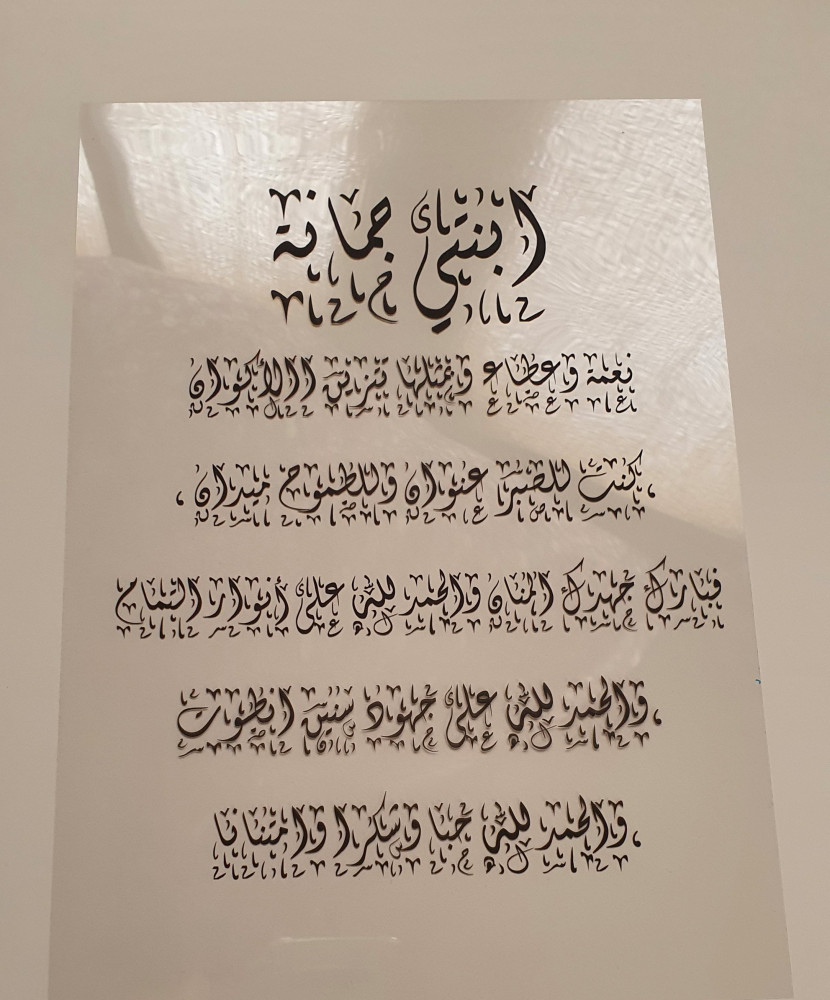 ابنتي جمانة
نعمة وعطاء وبمثلها تتزين االأكوان
،كنت للصبر عنوان وللطموح ميدان ،
فبارك جهدك المنان والحمد لله على أنوار التمام
،والحمد لله على جهود سنين انطوت
،والحمد لله حبا وشكرا وامتنانا